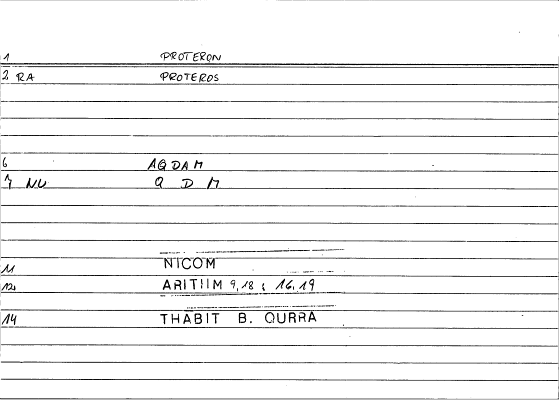 1 PROTERON
2 RA PROTEROS
6 AQDAM
7 NU Q D M
11 NICOM
12 ARITIIM 9,18 ; 16,19
14 THABIT B. QURRA